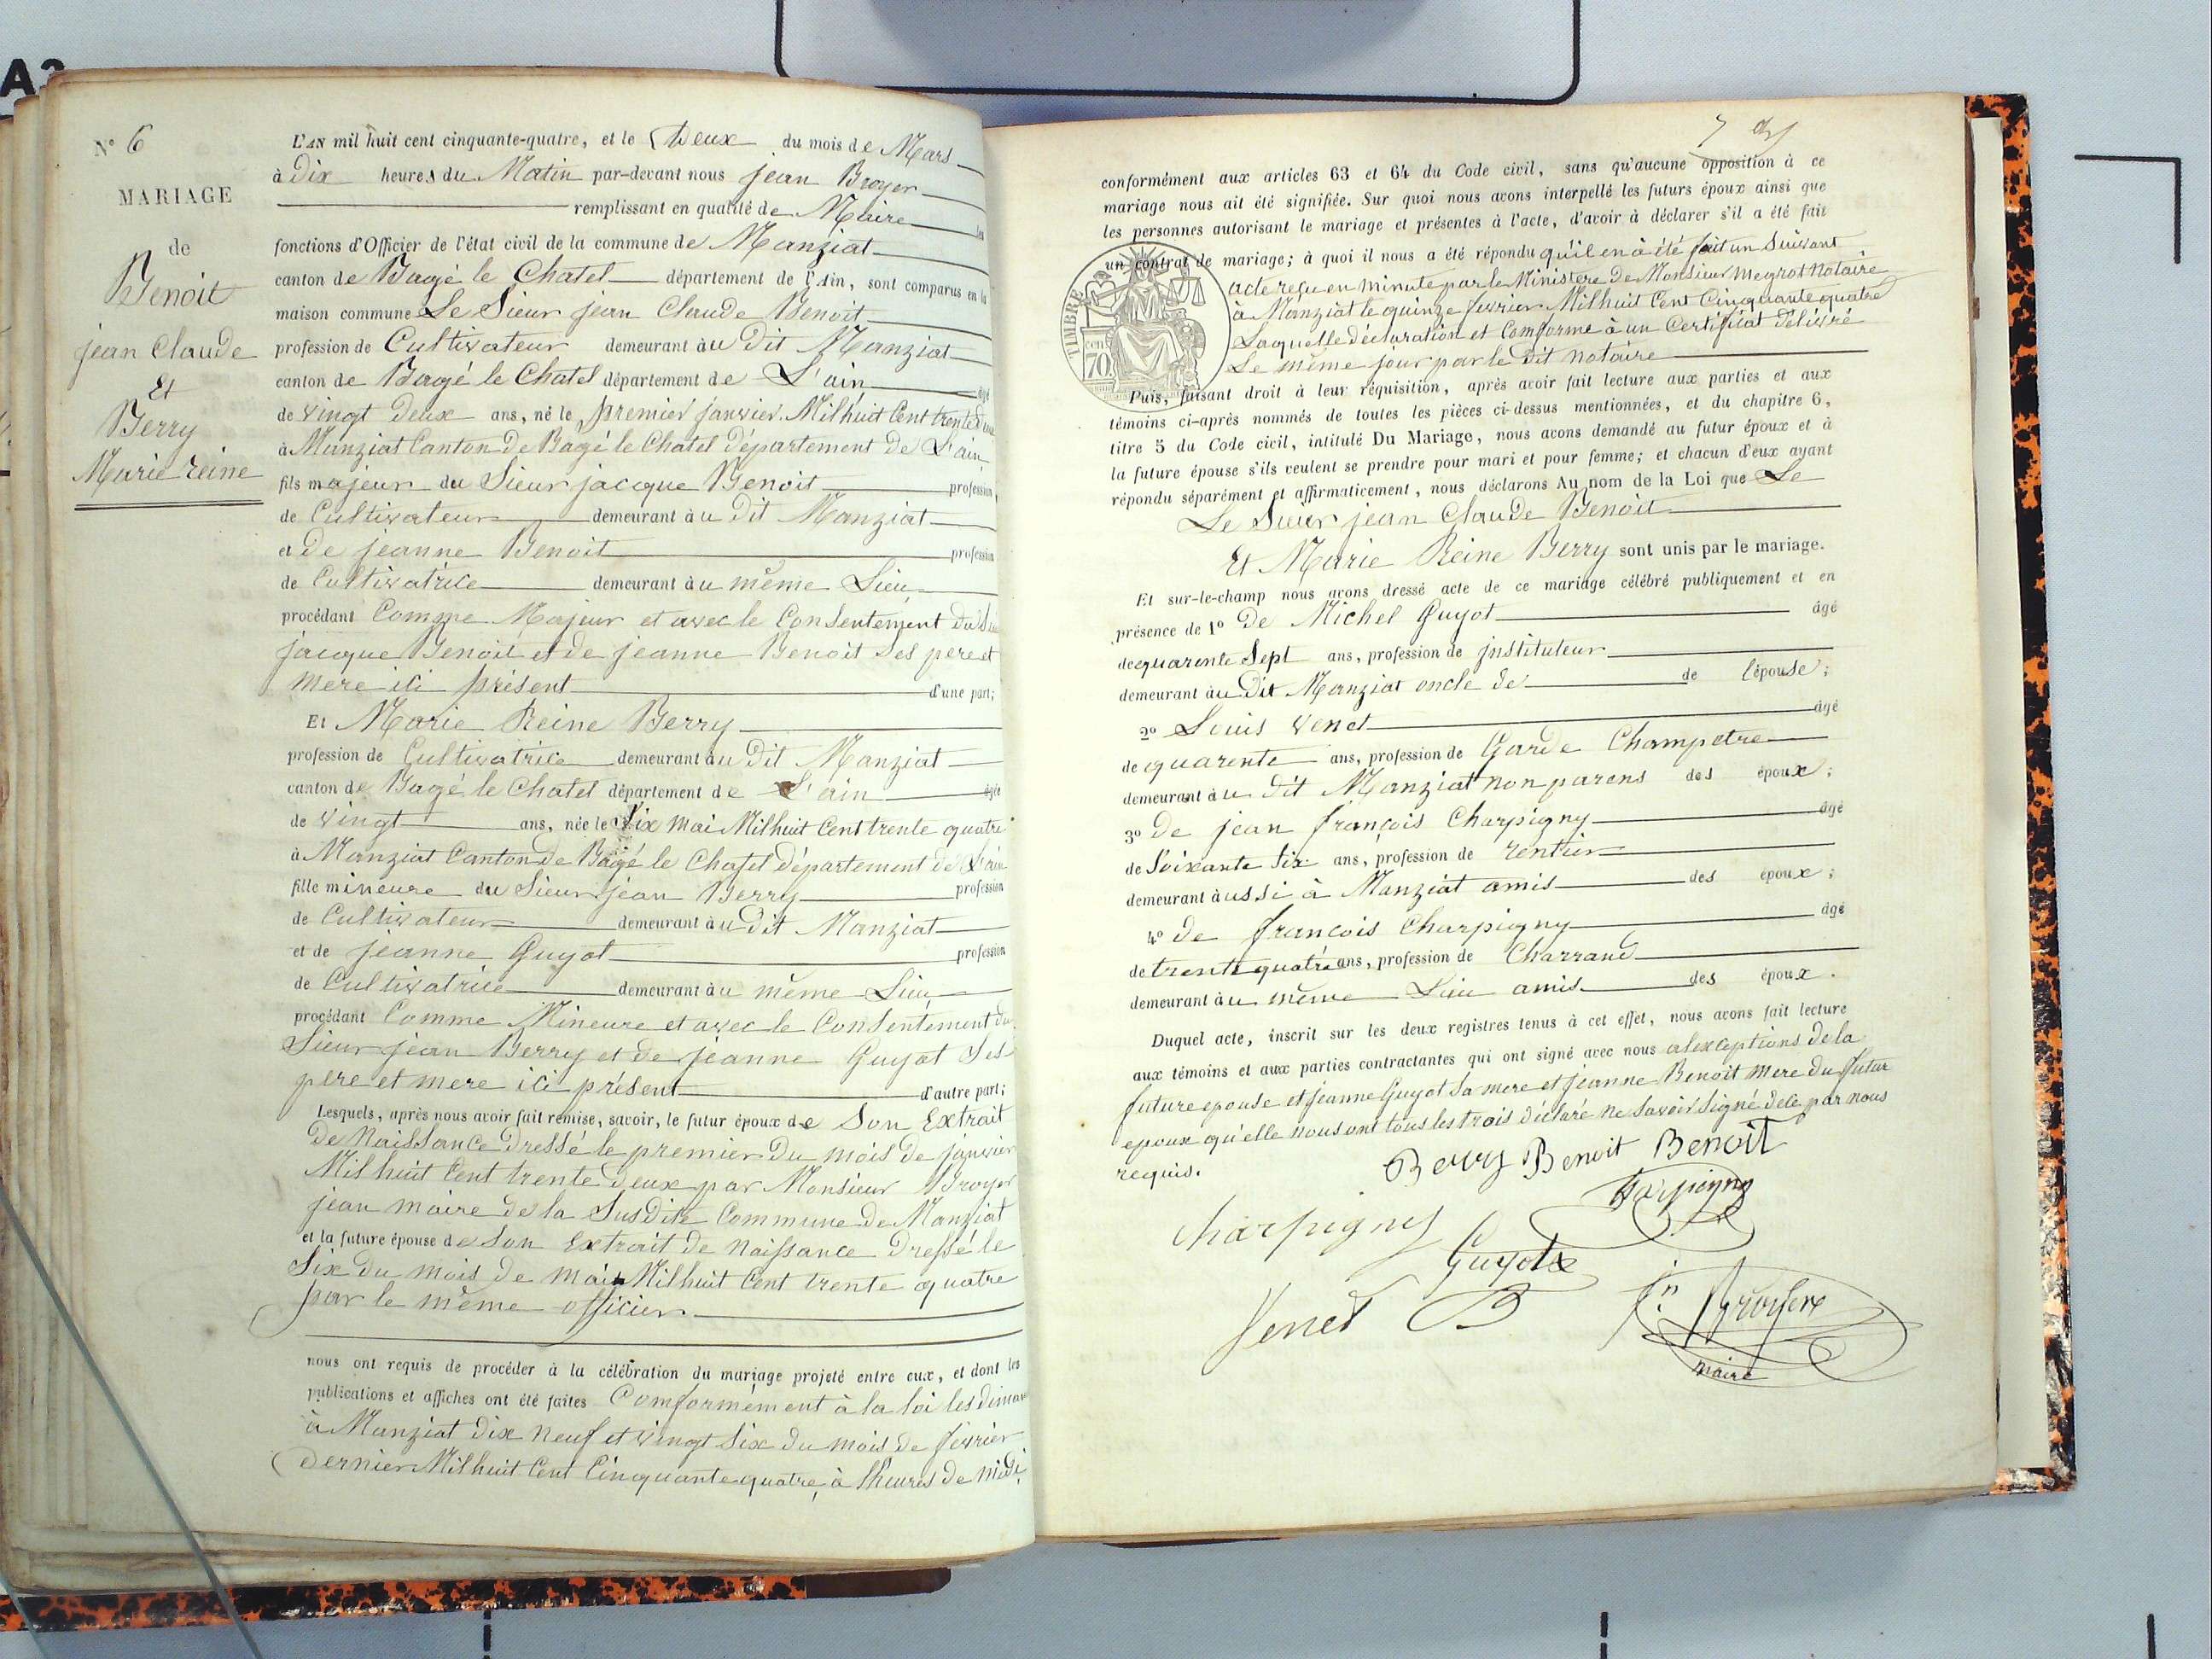 A3
N° 6
MARIAGE
de
Benoit
jean Claude
Et
Berry
Marie reine
L'AN mil huit cent cinquante-quatre, et le Deux du mois de Mars
à Dix heures du Matin par-devant nous jean Broyer
remplissant en qualité de Maire les
fonctions d'Officier de l'état civil de la commune de Manziat
canton de Bagé le Chatel département de l'Ain, sont comparus en la
maison commune Le Sieur jean Claude Benoit
profession de Cultivateur demeurant àu dit Manziat
canton de Bagé le Chatel département de L'ain âgé
de vingt deux ans, né le premier janvier Milhuit Cent trente deux
à Manziat Canton de Bagé le Chatel Département de L'ain
fils majeur du Sieur jacque Benoit profession
de Cultivateur demeurant àu Dit Manziat
et De jeanne Benoit profession
de Cultivatrice demeurant àu même Lieu
procédant Comme Majeur et avec le Consentement du
jacque Benoit et de jeanne Benoit Ses pere et
mere ici présent d'une part;
Et Marie Reine Berry
profession de Cultivatrice demeurant àu Dit Manziat
canton de Bagé le Chatel département de L'ain âgée
de vingt ans, née le Six Mai Milhuit Cent trente quatre
à Manziat Canton de Bagé le Chatel Département de L'ain
fille mineure du Sieur jean Berry profession
de Cultivateur demeurant àu Dit Manziat
et de jeanne Guyot profession
de Cultivatrice demeurant àu même Lieu
procédant Comme Mineure et avec le Consentement du
Sieur jean Berry et de jeanne Guyot Ses
pere et mere ici présent d'autre part;
Lesquels, après nous avoir fait remise, savoir, le futur époux de Son Extrait
De Naissance Dressé le premier Du mois de janvier
Milhuit Cent trente Deux par Monsieur Broyer
jean maire de la Susdite Commune De Manziat
et la future épouse de Son Extrait de Naissance Dressé le
Six du mois de mai Milhuit Cent trente quatre
par le même officier
nous ont requis de procéder à la célébration du mariage projeté entre eux, et dont les
publications et affiches ont été faites Comformément à la loi les diman
à Manziat Dix neuf et vingt Six du mois de fevrier
Dernier Milhuit Cent Cinquante quatre, à lheures de Midi
7
conformément aux articles 63 et 64 du Code civil, sans qu'aucune opposition à ce
mariage nous ait été signifiée. Sur quoi nous avons interpellé les futurs époux ainsi que
les personnes autorisant le mariage et présentes à l'acte, d'avoir à déclarer s'il a été fait
un contrat de mariage; à quoi il nous a été répondu qu'il en à été fait un Suivant
acte reçu en minute par le Ministere De Monsieur Meyrot Notaire
à Manziat le quinze fevrier Milhuit Cent Cinquante quatre
Laquelle déclaration et Comforme à un Certificat Délivré
Le même jour par le Dit Notaire
TIMBRE
cen
70.
Puis, faisant droit à leur réquisition, après avoir fait lecture aux parties et aux
témoins ci-après nommés de toutes les pièces ci-dessus mentionnées, et du chapitre 6,
titre 5 du Code civil, intitulé Du Mariage, nous avons demandé au futur époux et à
la future épouse s'ils veulent se prendre pour mari et pour femme; et chacun d'eux ayant
répondu séparément et affirmativement, nous déclarons Au nom de la Loi que Le
Le Sieur jean Claude Benoit
Et Marie Reine Berry sont unis par le mariage.
Et sur-le-champ nous avons dressé acte de ce mariage célébré publiquement et en
présence de 1° De Michel Guyot âgé
de quarente Sept ans, profession de jnstituteur
demeurant àu Dit Manziat oncle de de l'épouse;
2° Louis Venet âgé
de quarente ans, profession de Garde Champetre
demeurant àu dit Manziat non parens des époux;
3° De jean françois Charpigny âgé
de Soixante Six ans, profession de rentier
demeurant àussi à Manziat amis des époux;
4° de francois Charpigny âgé
de trente quatre ans, profession de Charrand
demeurant àu même Lieu amis des époux.
Duquel acte, inscrit sur les deux registres tenus à cet effet, nous avons fait lecture
aux témoins et aux parties contractantes qui ont signé avec nous alexceptions de la
future epouse et jeanne Guyot Sa mere et jeanne Benoit mere du futur
epoux qu'elle nous ont tous les trois déclaré ne Savoir Signé dele par nous
requis.
Berry Benoit Benoit
Charpigny
Charpigny
Guyot
Venet
jn Broyer
maire